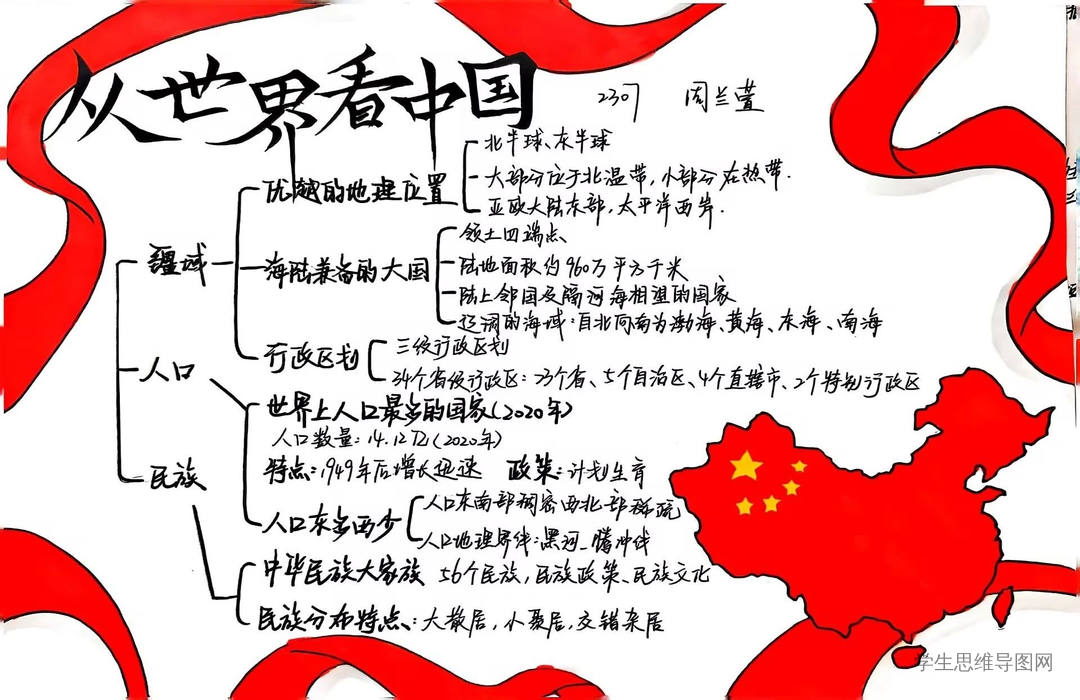 从世界看中国
2307 周兰萱
疆域
优越的地理位置
北半球、东半球
大部分位于北温带，小部分在热带.
亚欧大陆东部，太平洋西岸.
海陆兼备的大国
领土四端点
陆地面积约960万平方千米
陆上邻国及隔河海相望的国家
辽阔的海域：自北向南为渤海、黄海、东海、南海
行政区划
三级行政区划
34个省级行政区：23个省、5个自治区、4个直辖市、2个特别行政区
人口
世界上人口最多的国家(2020年)
人口数量：14.12亿(2020年)
特点：1949年后增长迅速 政策：计划生育
人口东多西少
人口东南部稠密西北部稀疏
人口地理界线：黑河—腾冲线
民族
中华民族大家族 56个民族，民族政策、民族文化
民族分布特点：大散居，小聚居，交错杂居
学生思维导图网